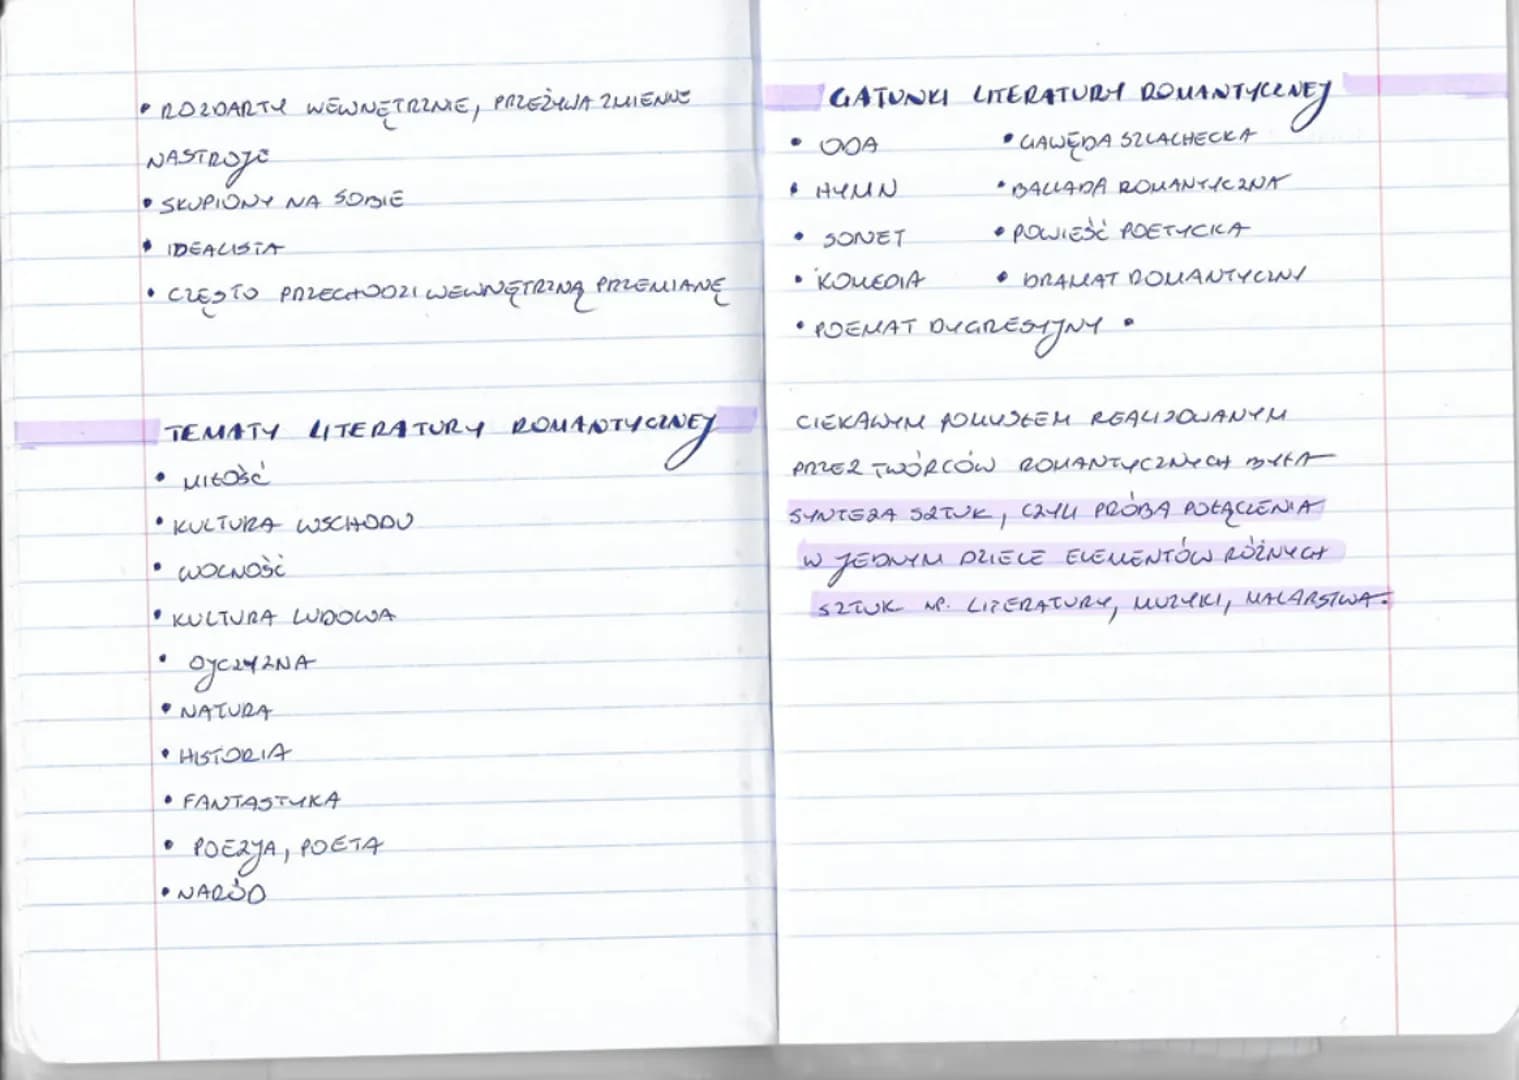 • ROZDARTY WEWNĘTRZNIE, PRZEŻYWA ZMIENNE
NASTROJE
• SKUPIONY NA SOBIE
• IDEALISTA
• CZĘSTO PRZECHODZI WEWNĘTRZNĄ PRZEMIANĘ
TEMATY LITERATURY ROMANTYCZNEJ
• MIŁOŚĆ
• KULTURA WSCHODU
• WOLNOŚĆ
• KULTURA LUDOWA
• OJCZYZNA
• NATURA
• HISTORIA
• FANTASTYKA
• POEZJA, POETA
• NARÓD
GATUNKI LITERATURY ROMANTYCZNEJ
• ODA • GAWĘDA SZLACHECKA
• HYMN • BALLADA ROMANTYCZNA
• SONET • POWIEŚĆ POETYCKA
• KOMEDIA • DRAMAT ROMANTYCZNY
• POEMAT DYGRESYJNY •
CIEKAWYM POMYSŁEM REALIZOWANYM
PRZEZ TWÓRCÓW ROMANTYCZNYCH BYŁA
SYNTEZA SZTUK, CZYLI PRÓBA POŁĄCZENIA
W JEDNYM DZIELE ELEMENTÓW RÓŻNYCH
SZTUK NP. LITERATURY, MUZYKI, MALARSTWA.